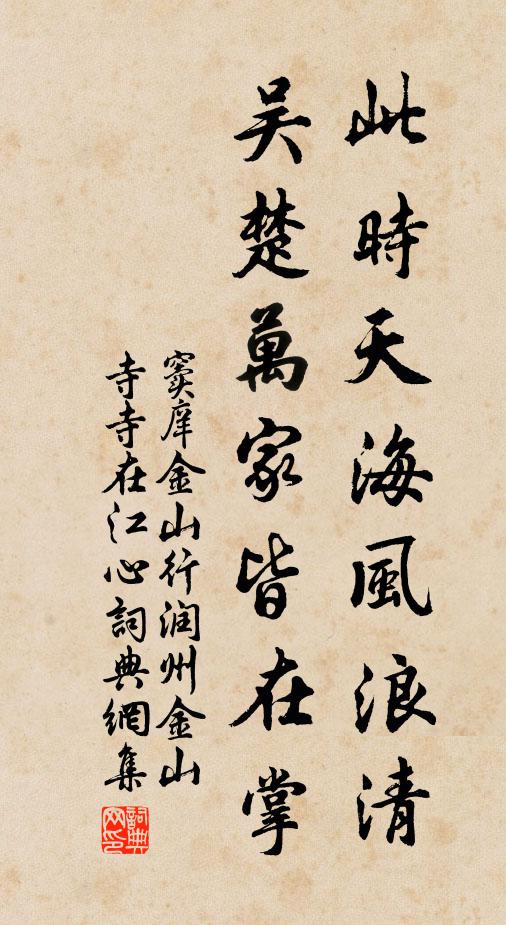 此時天海風浪清
吳楚萬家皆在掌
竇庠金山行润州金山
寺寺在江心詞典網集
詞典
网印